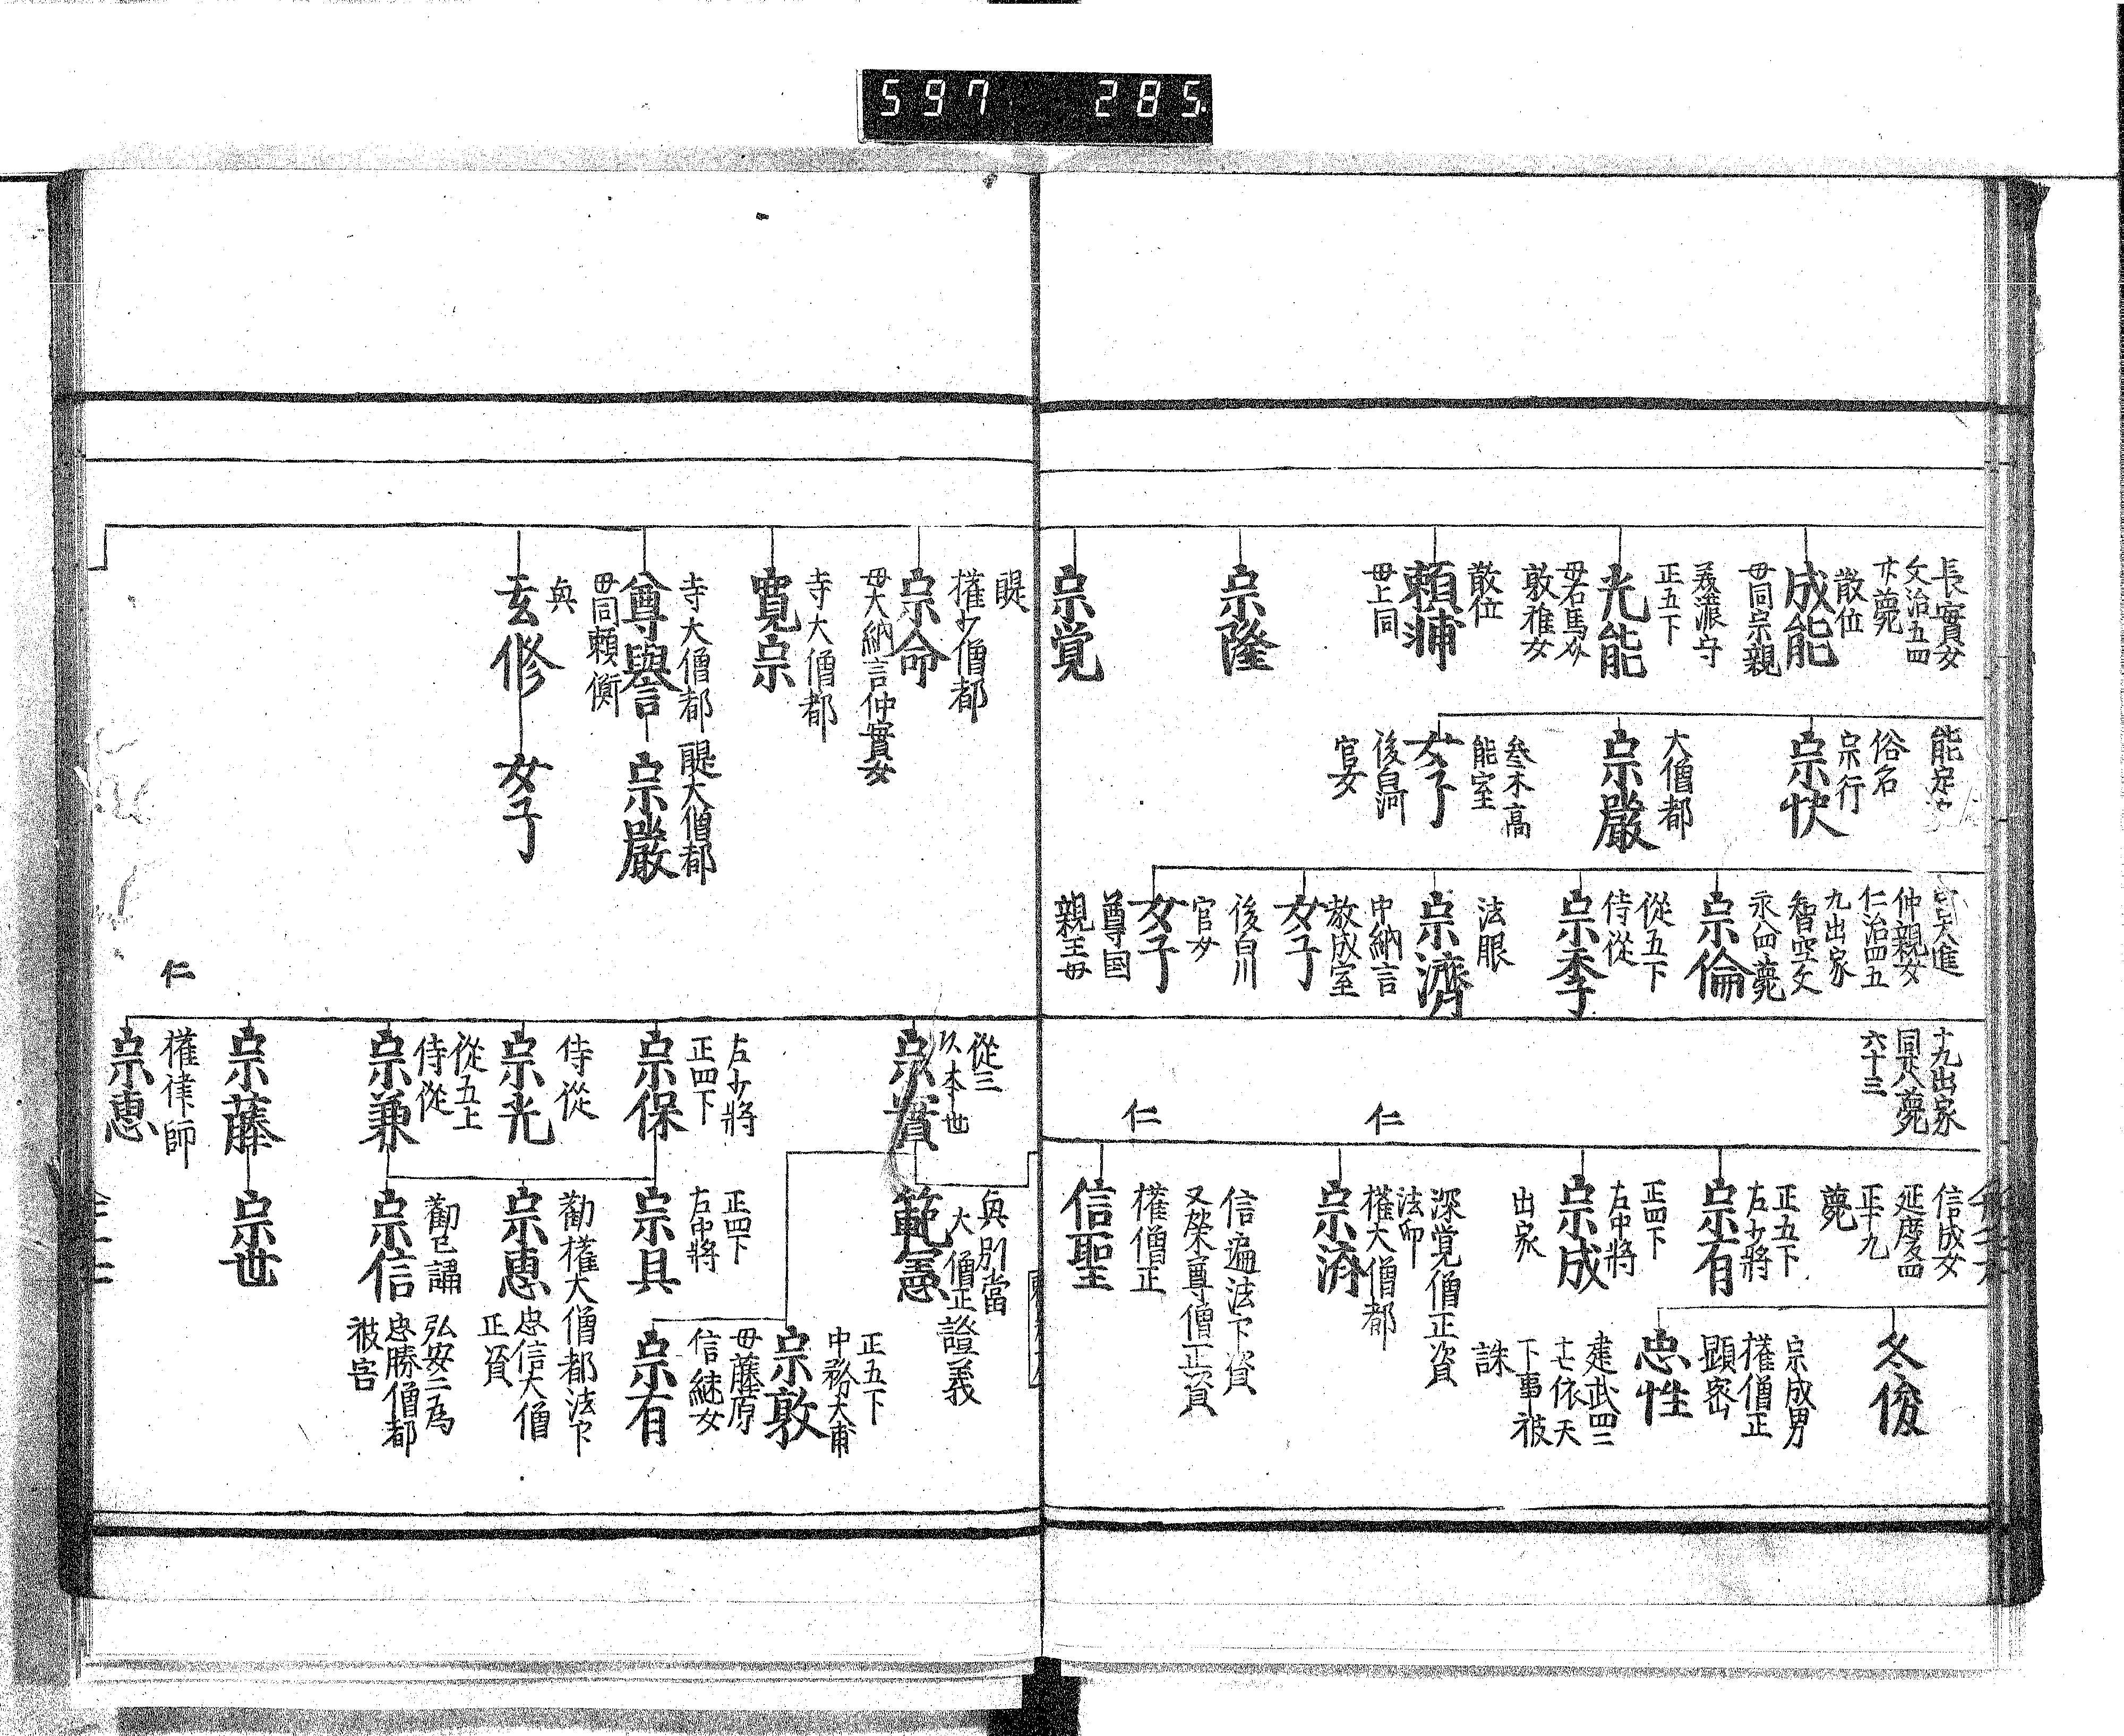 597 285
長實女
文治五四
廿薨
散位
成能
母同宗親
美濃守
正五下
光能
母右馬允
敦雅女
散位
頼輔
母上同
宗隆
宗覚
能定
俗名
宗行
宗快
大僧都
宗嚴
叁木高
能室
女子
後白河
官女
大進
仲親女
仁治四五
九出家
智空父
永四薨
宗倫
從五下
侍從
宗季
法眼
宗濟
中納言
教成室
女子
後白川
官女
女子
尊国
親王母
十九出家
同廿八薨
六十三
信成女
延慶四
正十九
薨
正五下
左少將
宗有
正四下
左中將
宗成
出家
深覚僧正資
法印
權大僧都
宗済
仁
信遍法下資
又榮尊僧正資
權僧正
信聖
仁
冬俊
宗成男
權僧正
顕密
忠性
建武四三
十七依天
下事被
誅
醍
權少僧都
宗命
母大納言仲實女
寺大僧都
寛宗
寺大僧都
尊譽
母同頼衡
醍大僧都
宗嚴
興
玄修
女子
從三
以本也
宗實
左少將
正四下
宗保
侍從
宗光
從五上
侍從
宗兼
宗藤
仁
權律師
宗恵
興別當
大僧正證義
範憲
正四下
右中將
宗具
勸權大僧都法下
忠信大僧
正資
宗恵
勸已講
宗信
弘安二為
忠勝僧都
被害
宗世
正五下
中務大甫
宗敦
母藤原
信継女
宗有